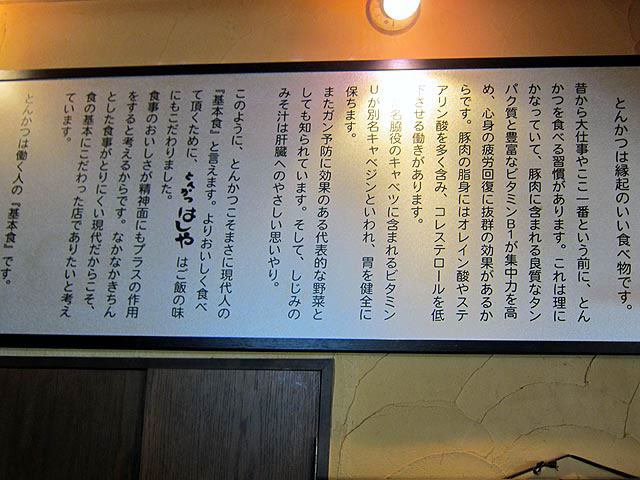 とんかつは縁起のいい食べ物です。
昔から大仕事やここ一番という前に、とん
かつを食べる習慣があります。これは理に
かなっていて、豚肉に含まれる良質なタン
パク質と豊富なビタミンB1が集中力を高
め、心身の疲労回復に抜群の効果があるか
らです。豚肉の脂身にはオレイン酸やステ
アリン酸を多く含み、コレステロールを低
下させる働きがあります。
名脇役のキャベツに含まれるビタミン
Uが別名キャベジンといわれ、胃を健全に
保ちます。
またガン予防に効果のある代表的な野菜と
しても知られています。そして、しじみの
みそ汁は肝臓へのやさしい思いやり。
このように、とんかつこそまさに現代人の
『基本食』と言えます。よりおいしく食べ
て頂くために、とんかつはしや はご飯の味
にもこだわりました。
食事のおいしさが精神面にもプラスの作用
をすると考えるからです。なかなかきちん
とした食事がとりにくい現代だからこそ、
食の基本にこだわった店でありたいと考え
ています。
とんかつは働く人の『基本食』です。